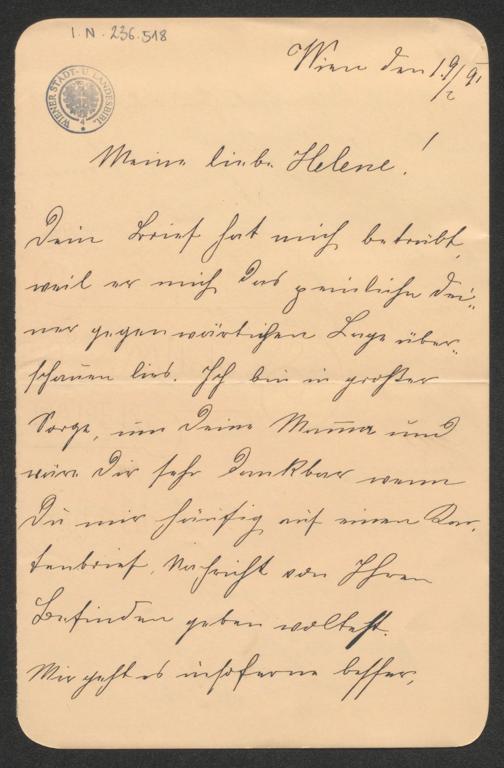 I. N. 236.518
WIENER STADT- U. LANDESBIBL.
Wien den 19/2 91
Meine liebe Helene!
Dein Brief hat mich betrübt,
weil er mich das peinliche Dei-
ner gegenwärtigen Lage über-
schauen lies. Ich bin in großter
Sorge, um Deine Mama und
wäre Dir sehr dankbar wenn
Du mir häufig auf einen Kar-
tenbrief, Nachricht von Ihren
Befinden geben woltest.
Mir geht es insoferne besser,